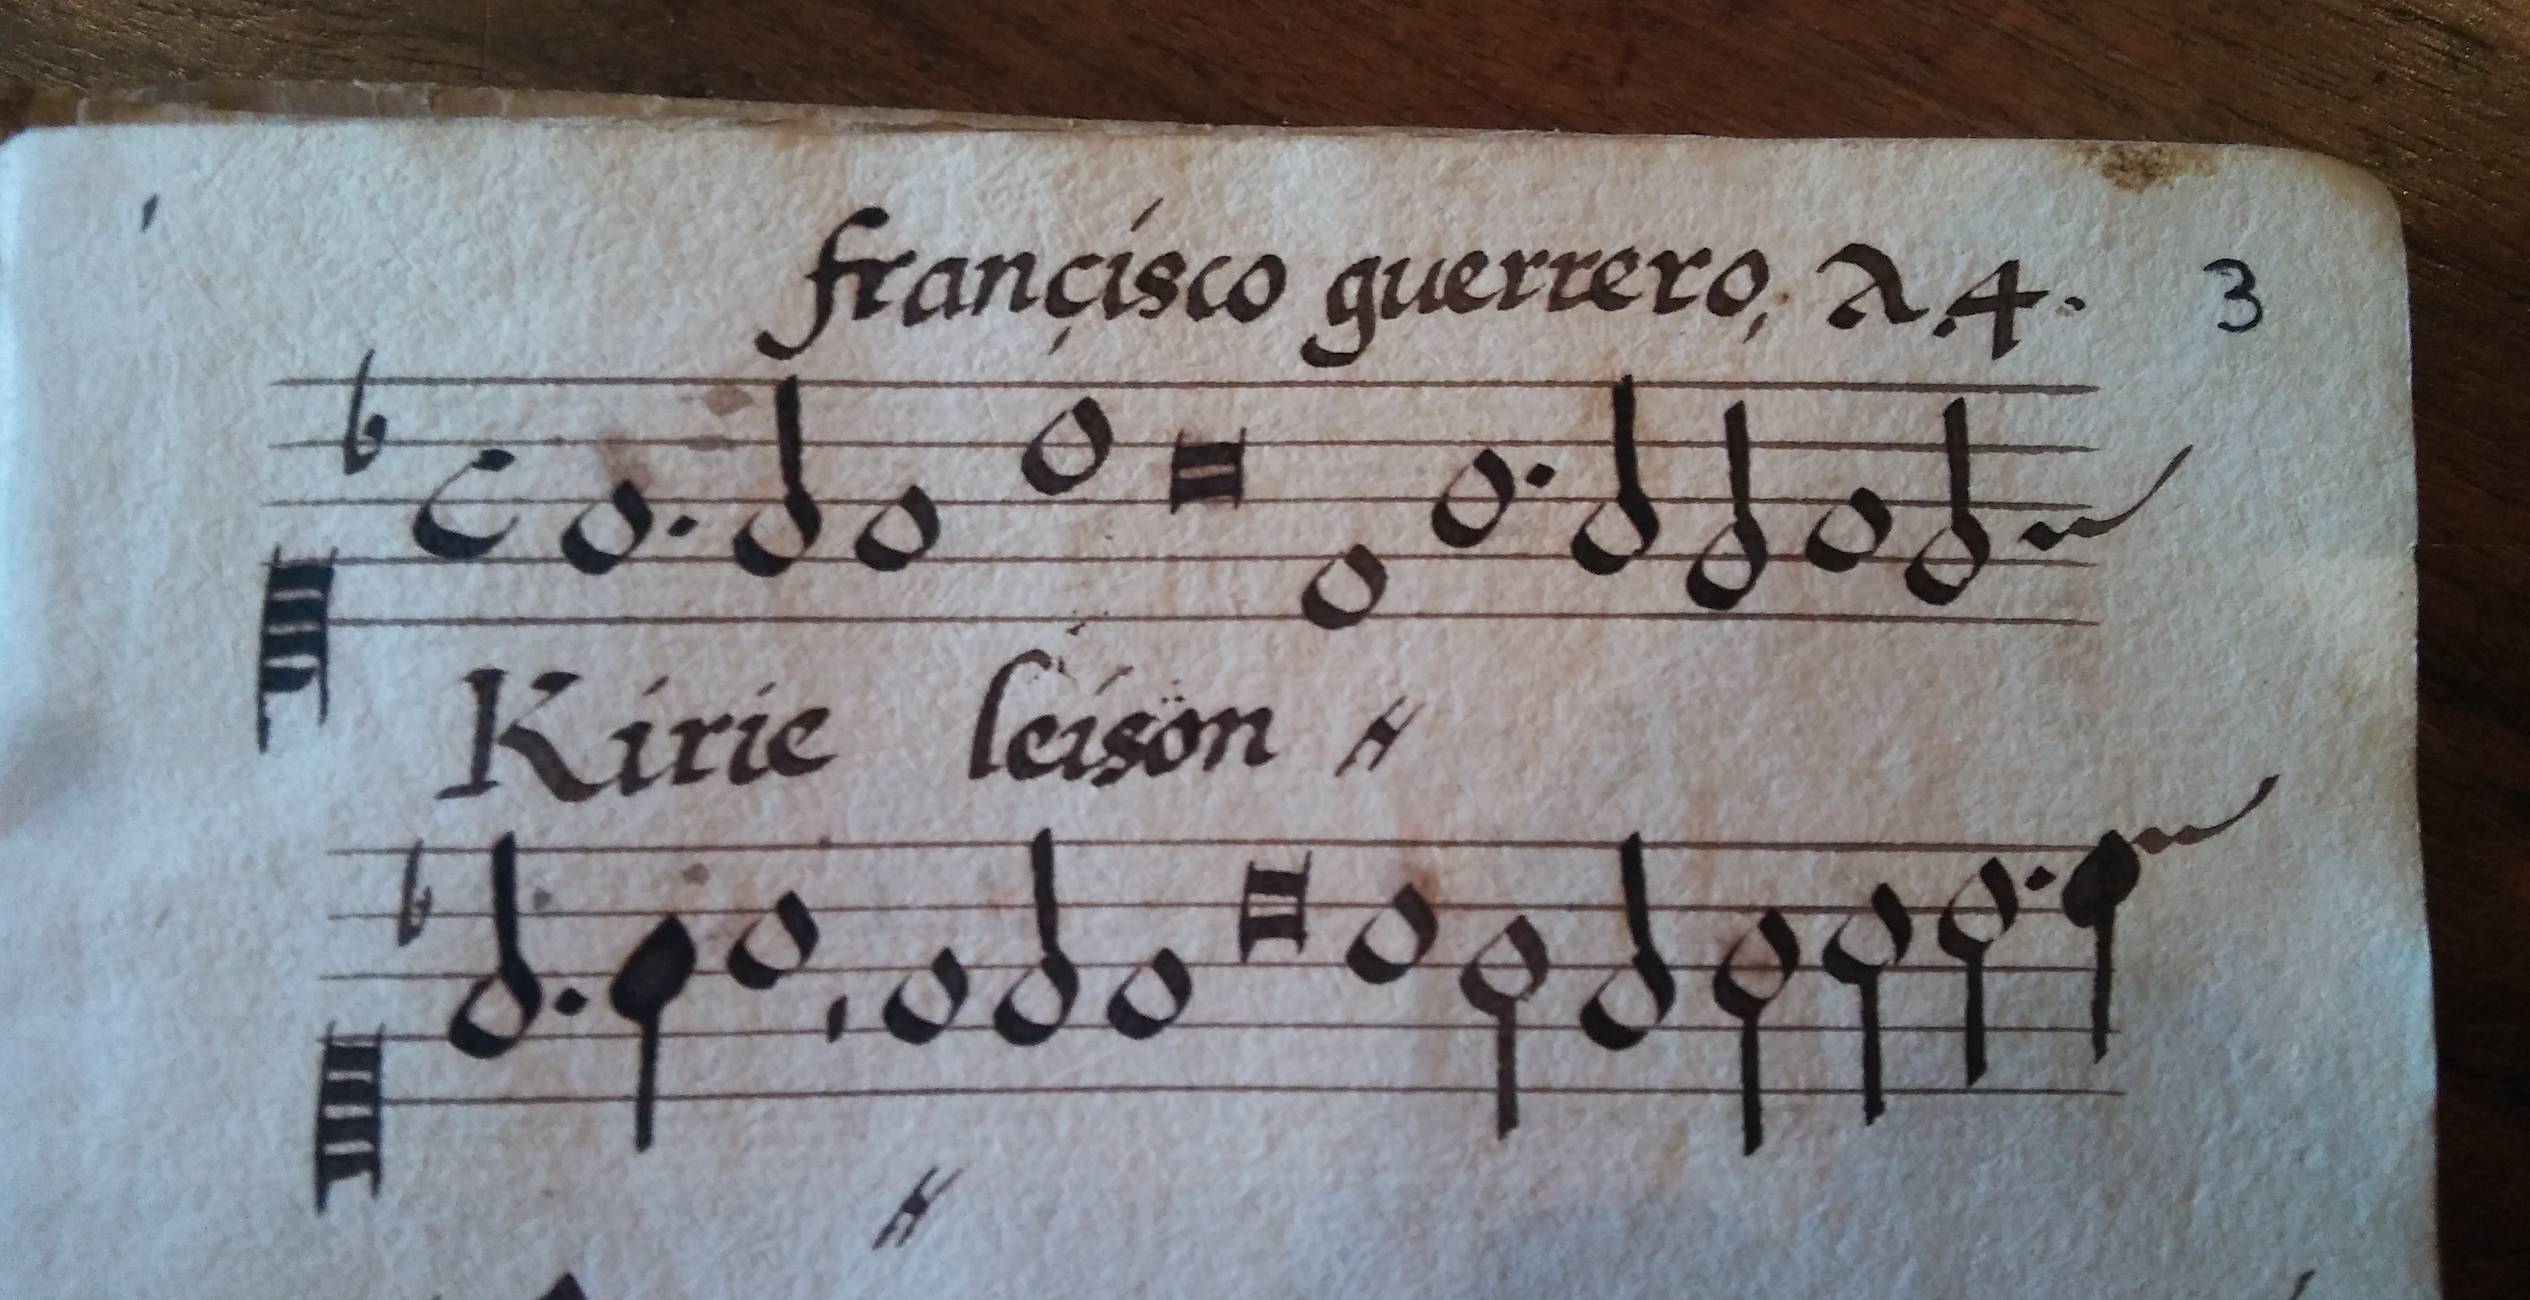 françisco guerrero, A.4. 3
Kirie leison